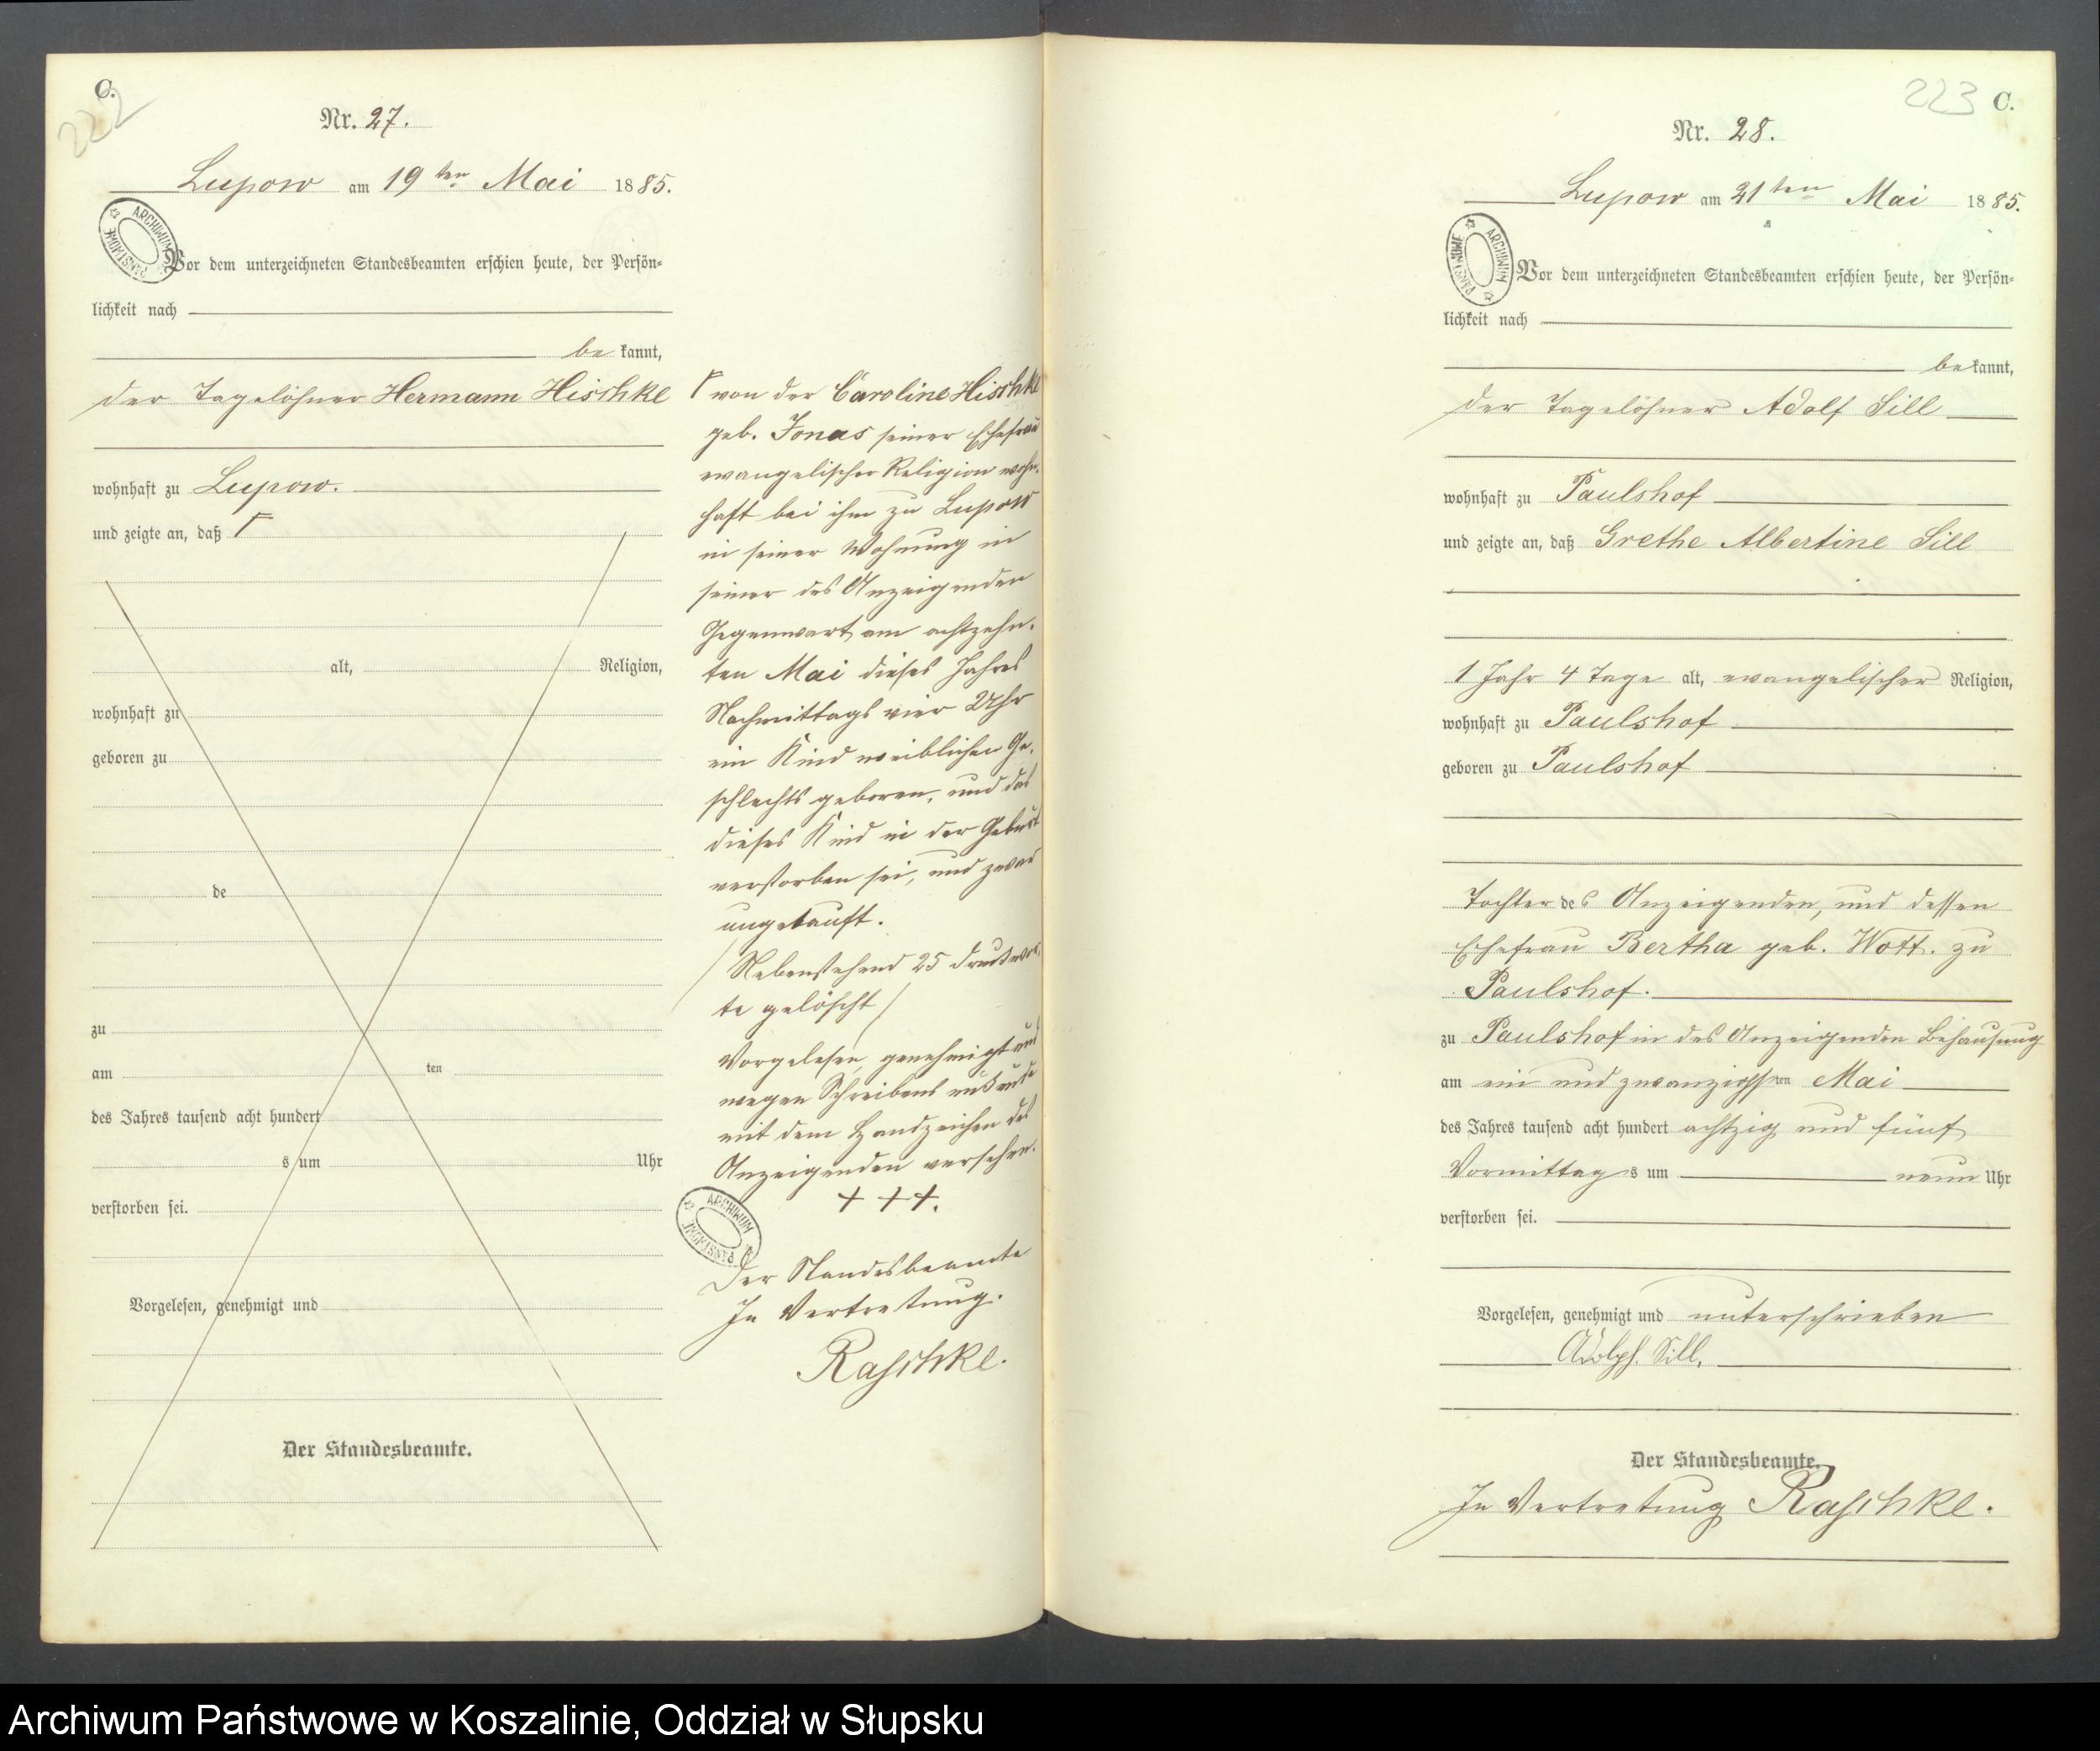 C.
222
Nr. 27.
Lupow am 19ten Mai 1885.
ARCHIWUM PAŃSTWOWE
Vor dem unterzeichneten Standesbeamten erschien heute, der Persön-
lichkeit nach
be kannt,
der Tagelöhner Hermann Hischke
wohnhaft zu Lupow.
und zeigte an, daß Γ
alt, Religion,
wohnhaft zu
geboren zu
de
zu
am ten
des Jahres tausend acht hundert
s um Uhr
verstorben sei.
Vorgelesen, genehmigt und
Der Standesbeamte.
Γ von der Caroline Hischke
geb. Jonas seiner Ehefrau
evangelischer Religion wohn-
haft bei ihm zu Lupow
in seiner Wohnung in
seiner des Anzeigenden
Gegenwart am achtzehn-
ten Mai dieses Jahres
Nachmittags vier Uhr
ein Kind weiblichen Ge-
schlechts geboren, und das
dieses Kind in der Geburt
verstorben sei, und zwar
ungetauft.
Nebenstehend 25 Druckwor-
te gelöscht
Vorgelesen, genehmigt und
wegen Schreibens
mit dem Handzeichen des
Anzeigenden versehen.
+ + +.
ARCHIWUM PAŃSTWOWE
Der Standesbeamte
In Vertretung.
Raschke.
223 C.
Nr. 28.
Lupow am 21ten Mai 1885.
ARCHIWUM PAŃSTWOWE
Vor dem unterzeichneten Standesbeamten erschien heute, der Persön-
lichkeit nach
be kannt,
der Tagelöhner Adolf Sill
wohnhaft zu Paulshof
und zeigte an, daß Grethe Albertine Sill
1 Jahr 4 Tage alt, evangelischer Religion,
wohnhaft zu Paulshof
geboren zu Paulshof
Tochter des Anzeigenden, und dessen
Ehefrau Bertha geb. Wott. zu
Paulshof.
zu Paulshof in des Anzeigenden Behausung
am ein und zwanzigsten Mai
des Jahres tausend acht hundert achtzig und fünf
Vormittags um neun Uhr
verstorben sei.
Vorgelesen, genehmigt und unterschrieben
Adolph Sill.
Der Standesbeamte.
In Vertretung Raschke.
Archiwum Państwowe w Koszalinie, Oddział w Słupsku